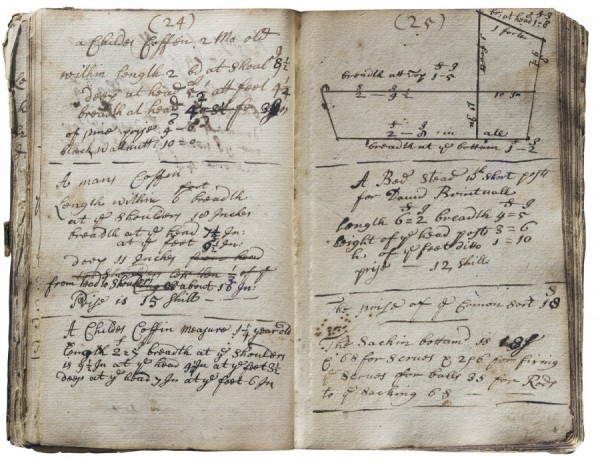 (24)
a Childes Coffen 2 Mo old
within Length 2 at Shoul 8 1/2
deep at head att feet 4 1/4
breadth at head
of pine prise 9 - 6
black wallnutt 10 = 0
A mans Coffin
Length within 6 foot breadth
at ye Shoulders 18 Inches
breadth at ye head 7 1/2 In:
at ye feet 9 1/2 In:
deep 11 Inches
of ye
from head to Shoulders about 18 In:
Prise is 15 Shill -
A Childes Coffin measure 1 1/4 year old
Length 2=5 breadth at ye Shoulders
is 9 1/2 In at ye head In at ye feet
deep at ye head 7 In at ye feet 6 In
(25)
br: at head 1-8
1 foot
1 foott
9 1/2
breadth att top 1-5
2 - 9 1/2
11 In
10 In
2 - 8 in all
breadth at ye bottom 1 - 2
A Bed Stead wth Short posts
for David Brintnall
Length 6=2 breadth 4=5
height of ye head posts 3=6
h: of ye feet ditto 1=10
prise - 12 Shill
The prise of ye Comon Sort 18
The Sackin bottam is 18
6:08 for Scrues & 2:6 for
Scrues for balls 35 for Rods
to ye Sacking 68 -